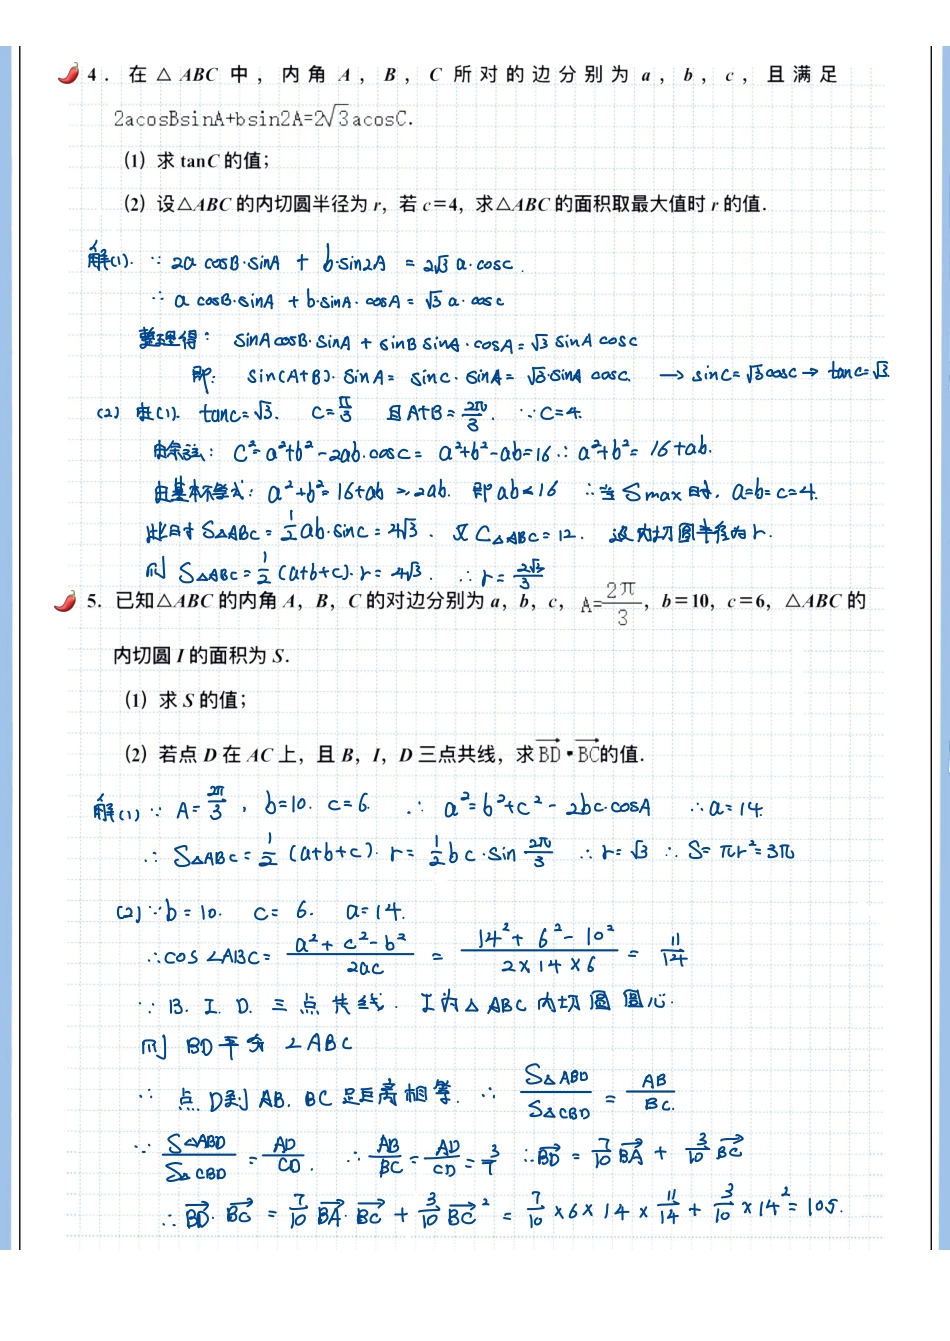 4． 在 △ ABC 中 ， 内 角 A ， B ， C 所 对 的 边 分 别 为 a ， b ， c ， 且 满 足
2acosBsinA+bsin2A=2√3acosC．
(1) 求 tanC 的值；
(2) 设△ABC 的内切圆半径为 r，若 c＝4，求△ABC 的面积取最大值时 r 的值．
解(1). ∵ 2a cosB·sinA + b·sin2A = 2√3 a·cosC.
∴ a cosB·sinA + b·sinA·cosA = √3 a·cosC
整理得: sinA cosB·sinA + sinB sinA·cosA = √3 sinA cosC
即: sin(A+B)·sinA = sinC·sinA = √3·sinA cosC. → sinC = √3cosC → tanC = √3.
(2) 由(1). tanC = √3. C = π/3 且 A+B = 2π/3. ∵ C = 4.
由余弦: C² = a²+b²-2ab·cosC = a²+b²-ab = 16 ∴ a²+b² = 16+ab.
由基本不等式: a²+b² = 16+ab ≥ 2ab. 即 ab ≤ 16 ∴ 当 S max 时, a=b=c=4.
此时 S△ABC = 1/2 ab·sinC = 4√3. 又 C△ABC = 12. 设内切圆半径为 r.
则 S△ABC = 1/2 (a+b+c)·r = 4√3. ∴ r = 2√3/3
5．已知△ABC 的内角 A，B，C 的对边分别为 a，b，c，A=2π/3，b＝10，c＝6，△ABC 的
内切圆 I 的面积为 S．
(1) 求 S 的值；
(2) 若点 D 在 AC 上，且 B，I，D 三点共线，求BD→·BC→的值．
解(1) ∵ A = 2π/3, b=10. c=6. ∴ a² = b²+c²-2bc·cosA ∴ a = 14.
∴ S△ABC = 1/2 (a+b+c)·r = 1/2 bc·sin 2π/3 ∴ r = √3 ∴ S = πr² = 3π
(2) ∵ b = 10. c = 6. a = 14.
∴ cos∠ABC = (a²+c²-b²)/2ac = (14²+6²-10²)/(2×14×6) = 11/14
∵ B. I. D. 三点共线. I为△ABC 内切圆圆心.
则 BD平分∠ABC
∴ 点D到AB. BC距离相等. ∴ S△ABD/S△CBD = AB/BC.
∵ S△ABD/S△CBD = AD/CD. ∴ AB/BC = AD/CD = 3/7 ∴ BD→ = 7/10 BA→ + 3/10 BC→
∴ BD→·BC→ = 7/10 BA→·BC→ + 3/10 BC→² = 7/10 ×6×14× 11/14 + 3/10 ×14² = 105.